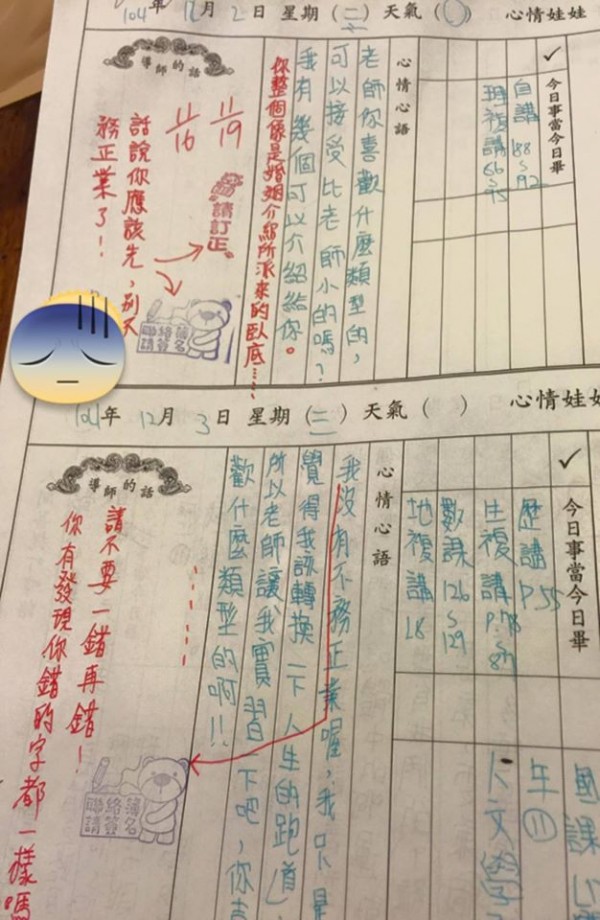 104年 12月 2日 星期(二) 天氣( ) 心情娃娃
✓ 今日事當今日畢
自講 188~92
複講 66~75
心情心語
老師你喜歡什麼類型的,
可以接受比老師小的嗎?
我有幾個可以介紹給你。
你整個像是婚姻介紹所派來的臥底……
導師的話
11/19
11/16
請訂正
話說你應該先,別不
務正業了!
聯絡簿
請簽名
年 12月 3日 星期(三) 天氣( ) 心情娃娃
✓ 今日事當今日畢
歷講 P.55
生複講 P.78~87
數課 126~129
地複講 18
國課
年⑪
人文學
心情心語
我沒有不務正業喔,我只是
覺得我該轉換一下人生的跑道,
所以老師讓我實習一下吧,你喜
歡什麼類型的啊!!
導師的話
請不要一錯再錯!
你有發現你錯的字都一樣嗎
聯絡簿
請簽名